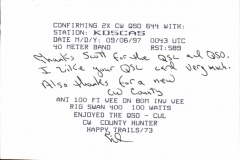 CONFIRMING 2X CW QSO 644 WITH:
STATION: KD5CAS
DATE M/D/Y: 09/06/97 0043 UTC
40 METER BAND RST: 589
Thanks Scott for the QSL and QSO.
I like your QSL card very much.
Also thanks for a new
CW County
ANT 100 FT VEE ON 80M INV VEE
RIG SWAN 400 100 WATTS
ENJOYED THE QSO - CUL
CW COUNTY HUNTER
HAPPY TRAILS/73